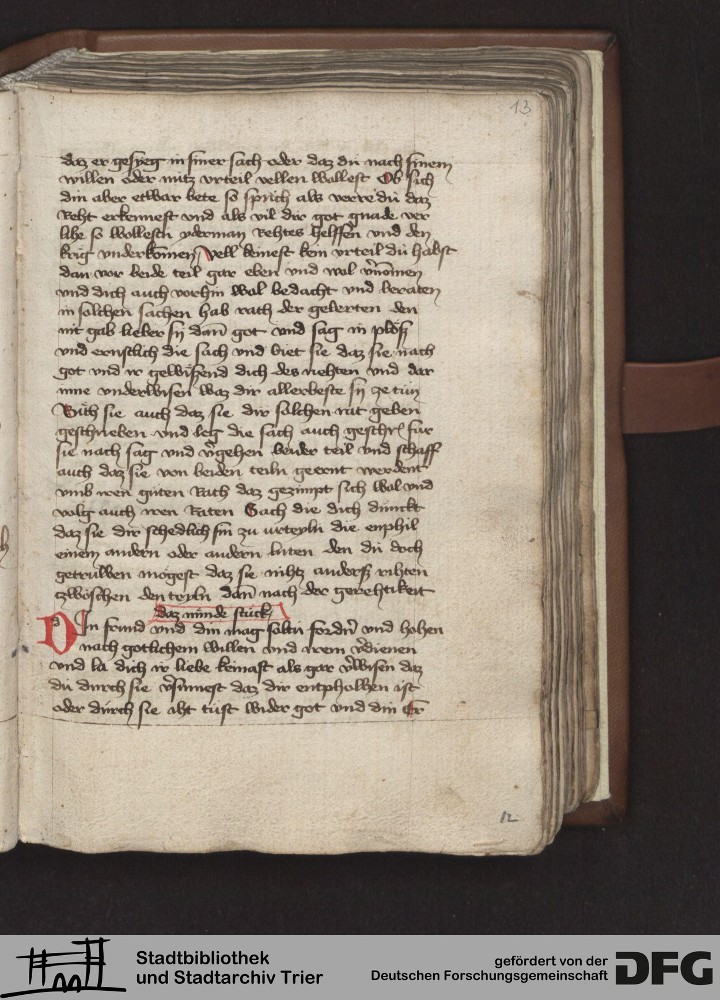 13
daz er gesyeg in siner sach oder daz du nach sinem
willen oder nütz vrteil vellen wollest Ob sich
din aber etwar bete so sprich als verre du daz
Reht erkennest vnd als vil dir got gnade ver
lihe so wollestu yderman Rehtes helffen vnd den
krig vnderkomen vell keinest kein vrteil du habst
dan vor beide teil gar eben vnd wol v̄nomen
vnd dich auch vorhin wol bedacht vnd beraten
in solchen sachen hab rath der gelerten den
mit gab lieber sy dan̄ got vnd sag in
vnd ernstlich die sach vnd biet sie daz sie nach
got vnd ir gewißend dich des rehten vnd dar
inne vnderwisen waz dir allerbeste sy ze tün
Bith sie auch daz sie dir solchen rat geben
geschrieben vnd leg die sach auch für
sie nach sag vnd v̄gehen beider teil vnd schaff
auch daz sie von beiden teiln geernt werdent
vmb iren güten Rath daz gezimpt sich wol vnd
volg auch iren Raten Sach die dich dünckt
daz sie dir schedlich sin zu vrteyln die enphil
einem andern oder andern luten den du doch
getruwen mögest daz sie nihtz anderß rihten
zwöschen den teyln dan̄ nach der gerehtikeit
daz nünde stück
DIn frund vnd din mag soltu vnd hohen
nach gotlichem willen vnd irem v̄dienen
vnd la dich ir liebe keinast als gar v̄wisen daz
du durch sie v̄sümest daz dir entpholhen ist
oder dürch sie iht tüst wider got vnd din Er
12
Stadtbibliothek
und Stadtarchiv Trier
gefördert von der
Deutschen Forschungsgemeinschaft
DFG